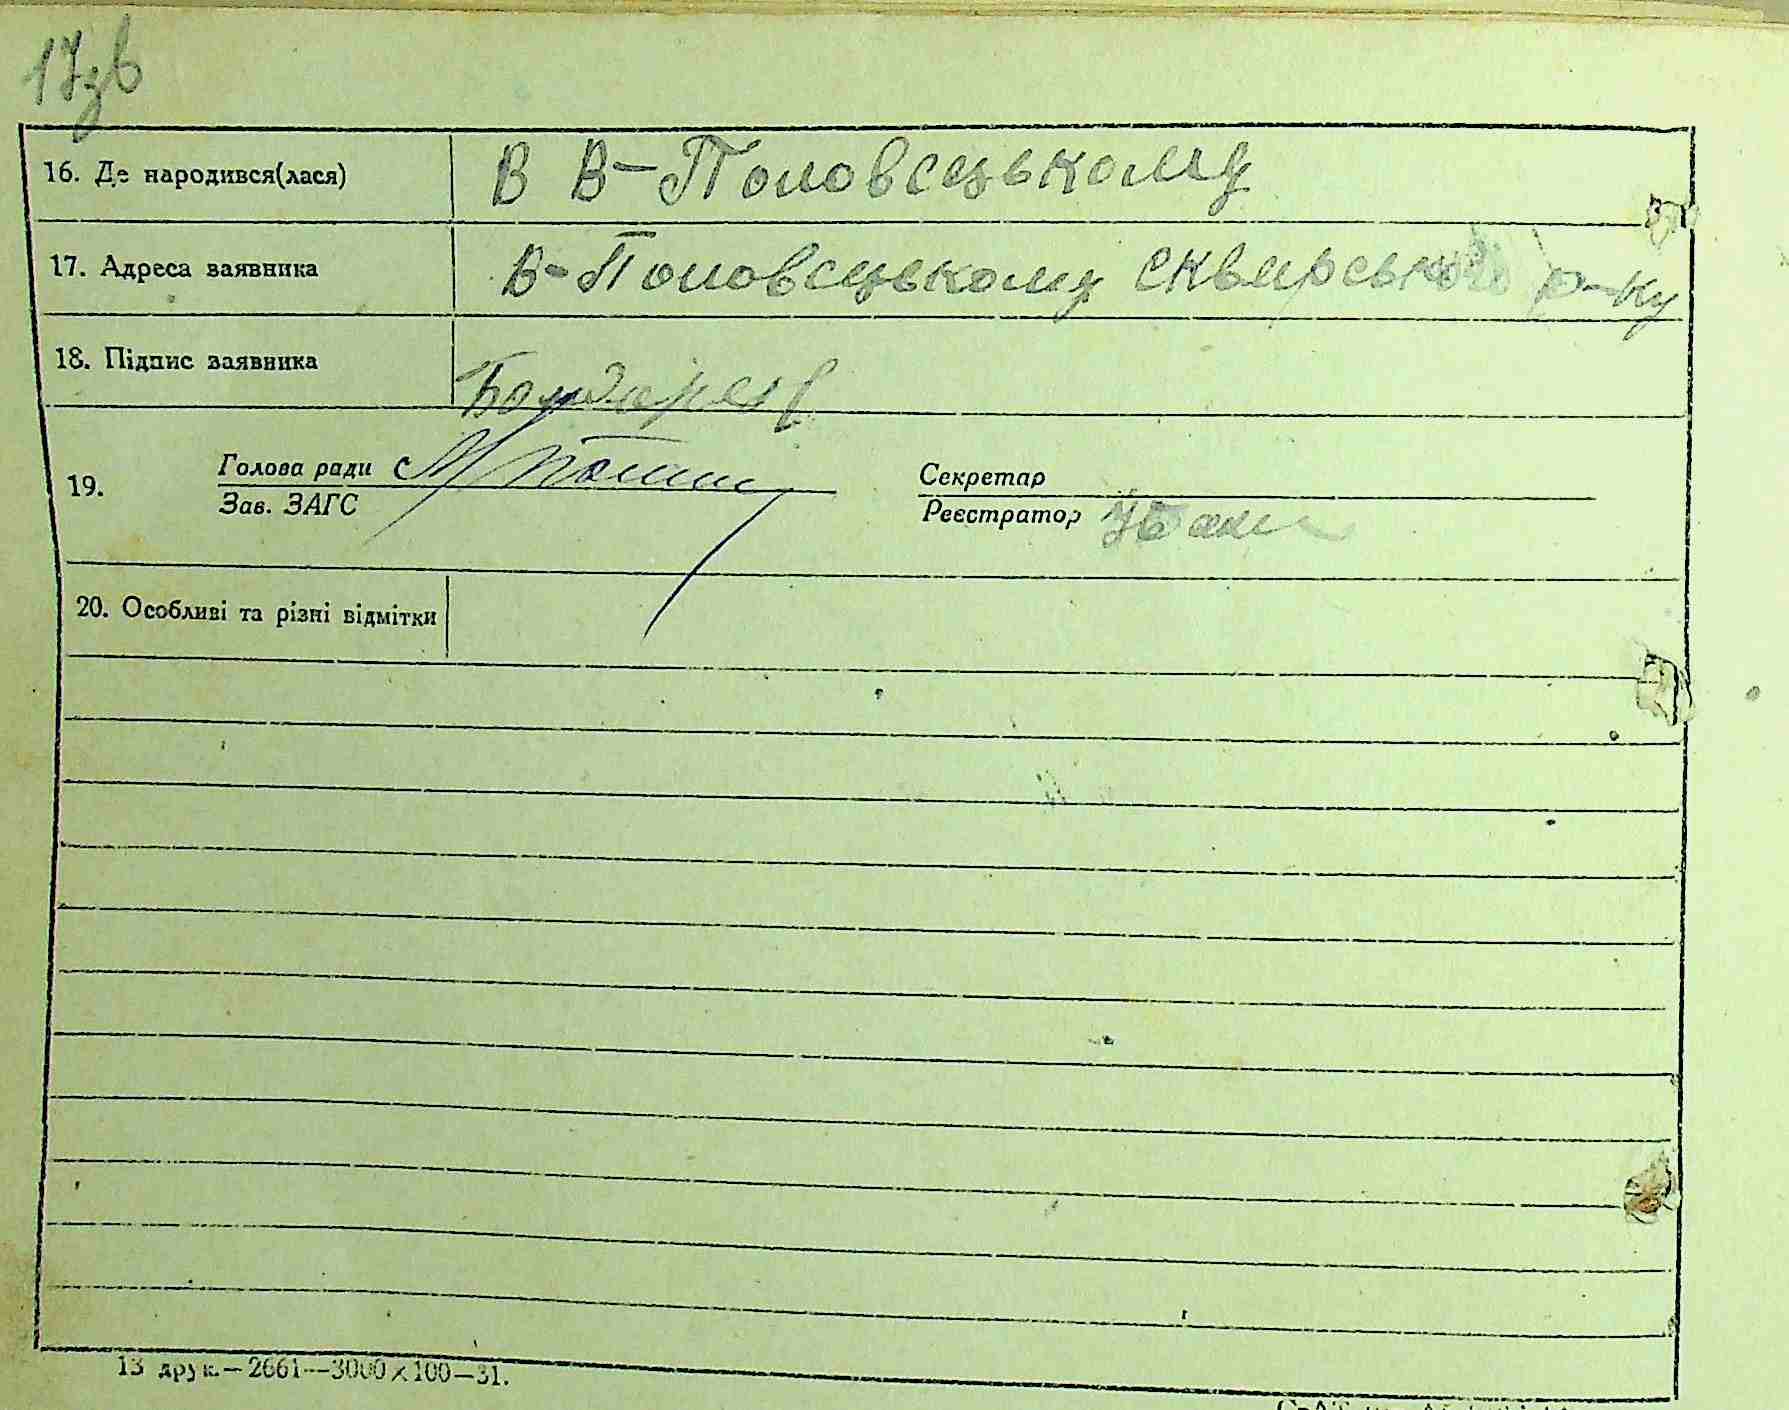 17зв
16. Де народився(лася) В В-Половецькому
17. Адреса заявника В-Половецькому Сквирського р-ку
18. Підпис заявника
19. Голова ради
Зав. ЗАГС
Секретар
Реєстратор
20. Особливі та різні відмітки
13 друк.—2661—3000×100—31.